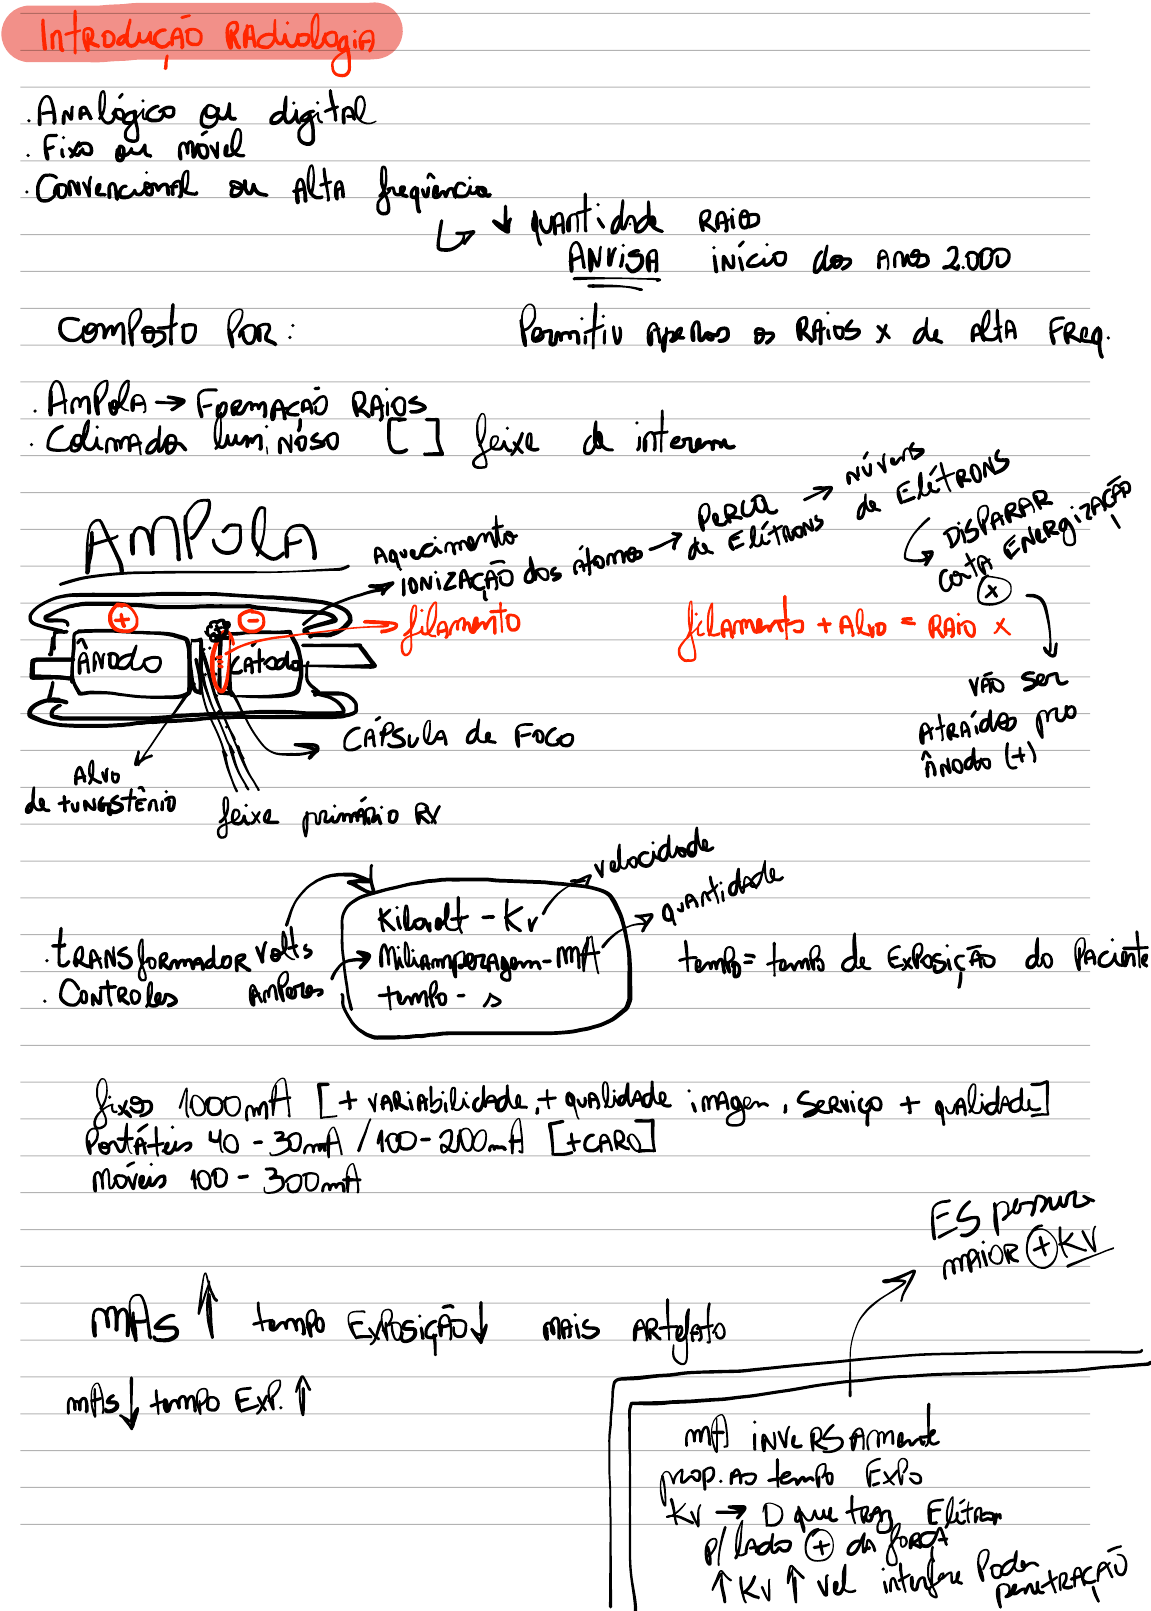 Introdução Radiologia
. Analógico ou digital
. Fixo ou móvel
. Convencional ou Alta frequência
↳ ↓ quantidade raios
ANVISA início dos anos 2.000
Composto por: Permitiu apenas os Raios x de Alta Freq.
. Ampola → Formação Raios
. Colimador luminoso [ ] feixe de
AMPOLA
Aquecimento
Ionização dos átomos → Perca de Elétrons → núvens de Elétrons
DISPARAR
Energização
(x)
vão ser
atraídos pro
ânodo (+)
+ -
filamento
filamento + Alvo = Raio x
Ânodo
Cátodo
Cápsula de Foco
Alvo
de tungstênio
feixe primário RX
. Transformador volts
. Controles Amperes
Kilovolt - Kv → velocidade
Miliamperagem - mA → quantidade
tempo - s
tempo = tempo de Exposição do Paciente
fixos 1000mA [+ variabilidade, + qualidade imagem, serviço + qualidade]
Portáteis 40 - 30mA / 100 - 200mA [+caro]
Móveis 100 - 300mA
ES
maior (+) KV
mAs ↑ tempo Exposição ↓ mais artefato
mAs ↓ tempo Exp. ↑
mA inversamente
prop. ao tempo Expo
Kv → D que traz
p/ lado (+) da força
↑ Kv ↑ vel interfere Poder
penetração